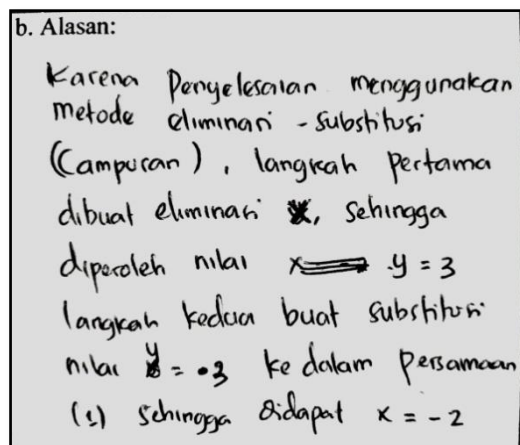 b. Alasan:
Karena Penyelesaian menggunakan
metode eliminasi - substitusi
(Campuran), langkah pertama
dibuat eliminasi x, sehingga
diperoleh nilai y = 3
langkah kedua buat substitusi
nilai y = 3 ke dalam persamaan
(1) sehingga didapat x = -2